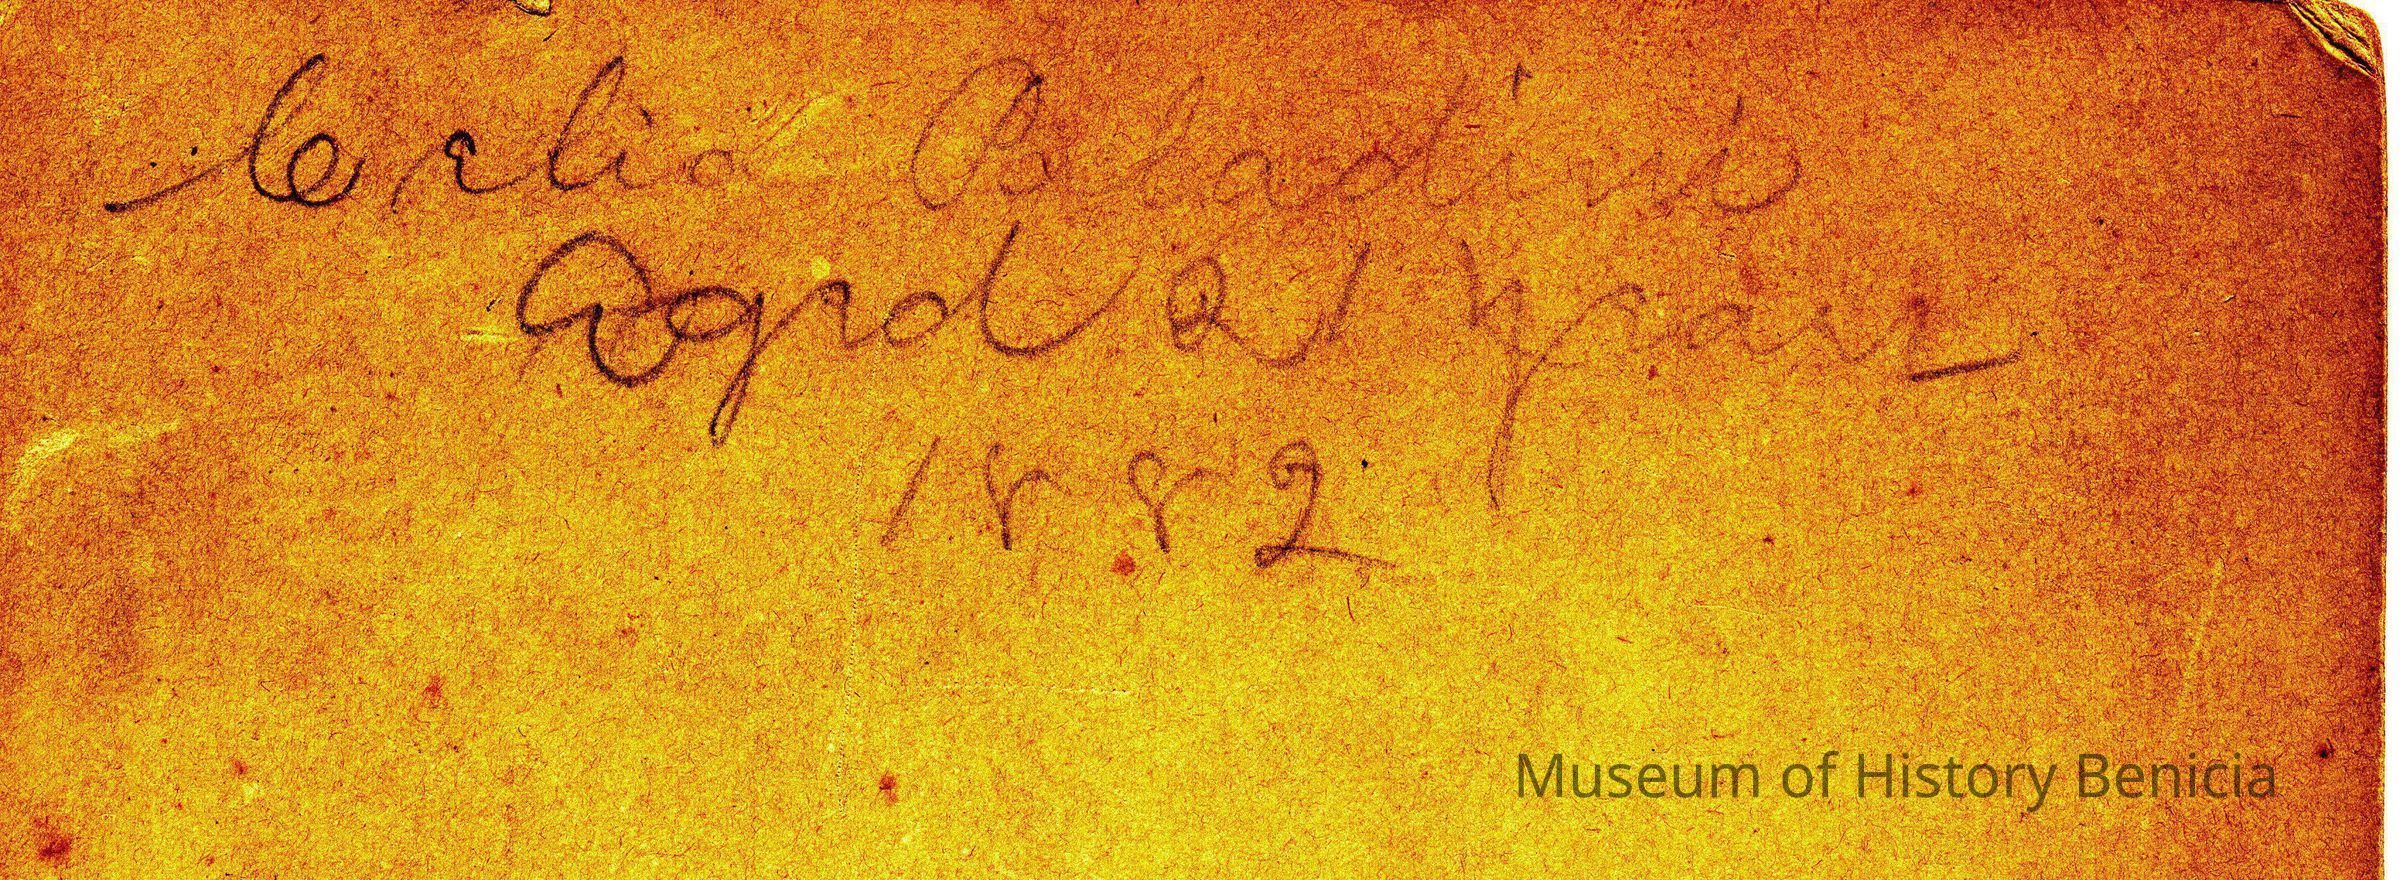 Celia
Aged 21 years
1882
Museum of History Benicia